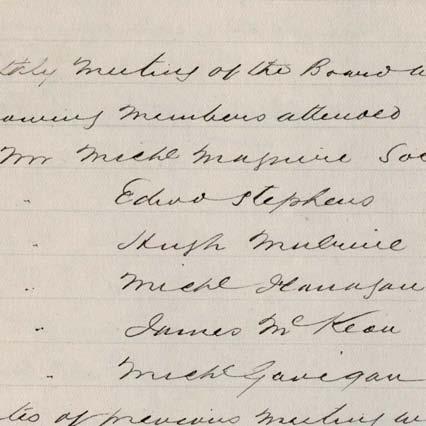 thly Meeting of the Board w
owing Members attended
Mr Michl Maguire Soc
" Edwd Stephens
" Hugh
" Michl Flanagan
" James McKeon
" Michl Gavigan
tes of previous Meeting w